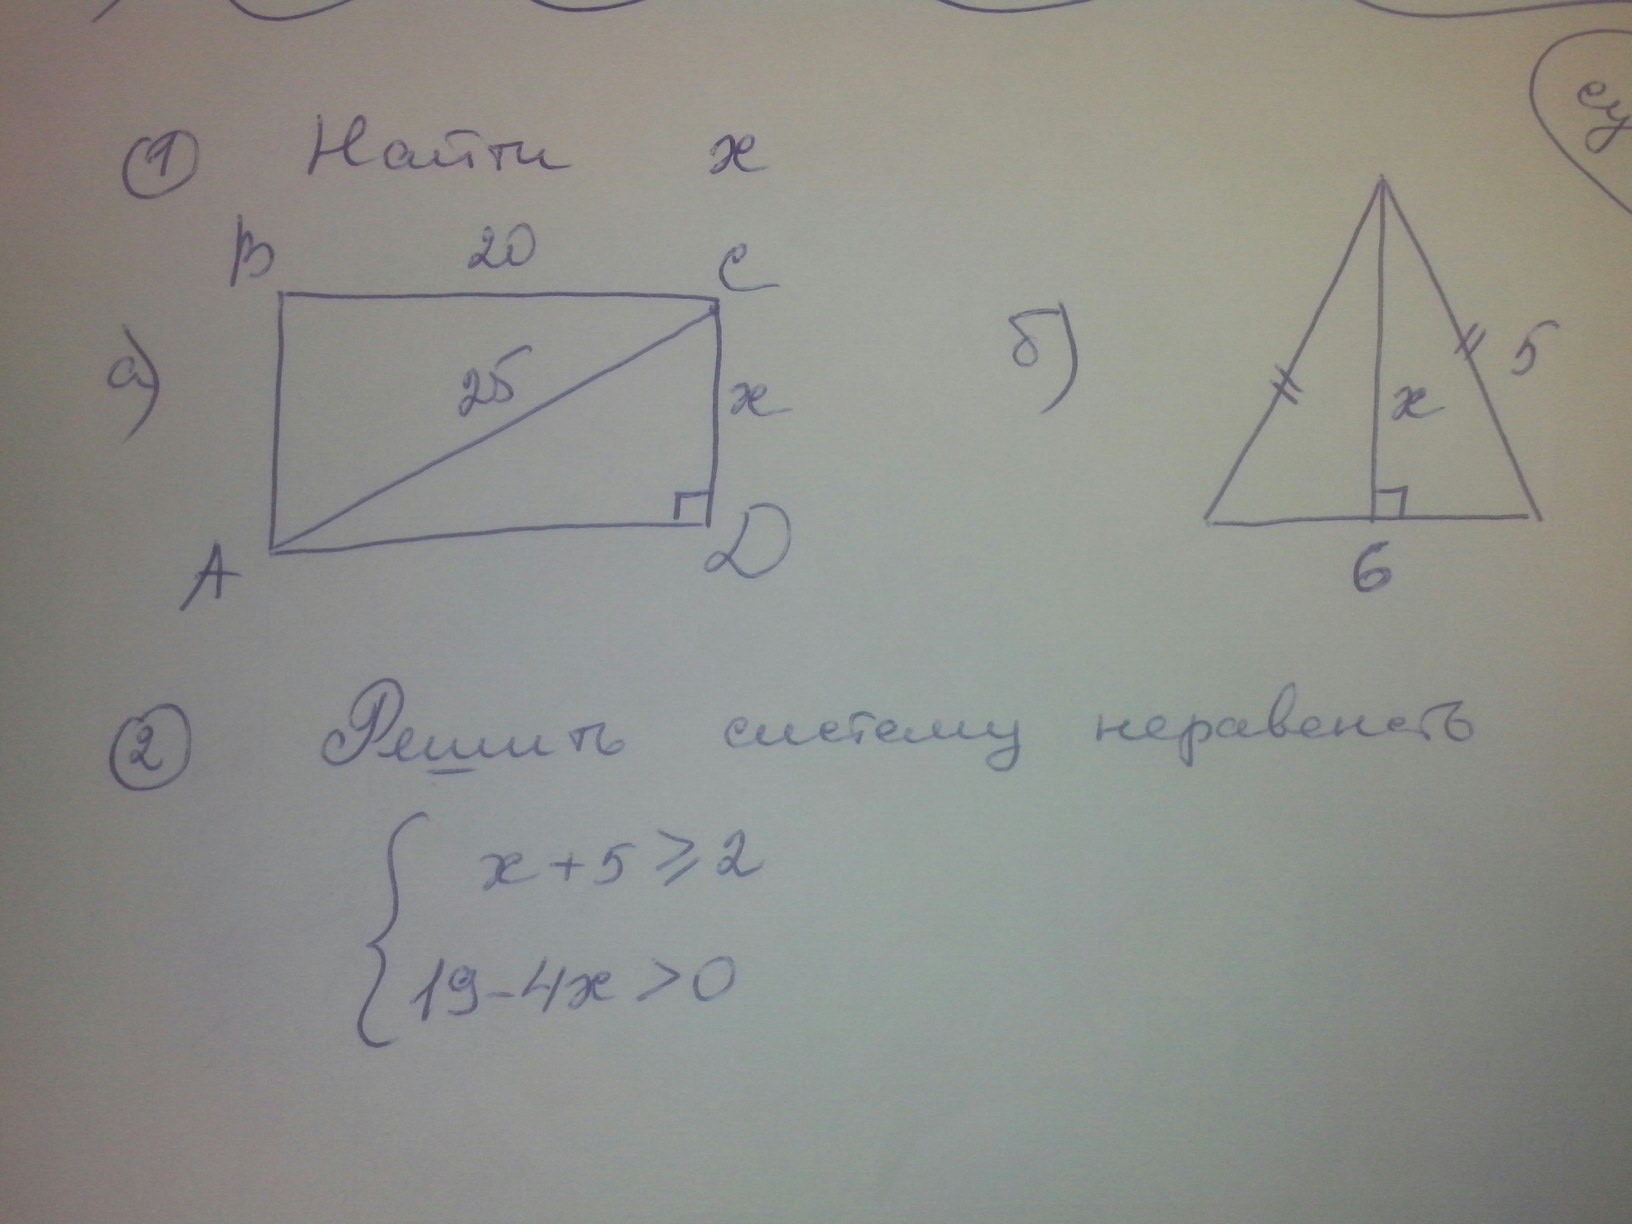 ① Найти x
B 20 C
а) 25 x
A D
б) 5
x
6
② Решить систему неравенств
x + 5 ⩾ 2
19 - 4x > 0